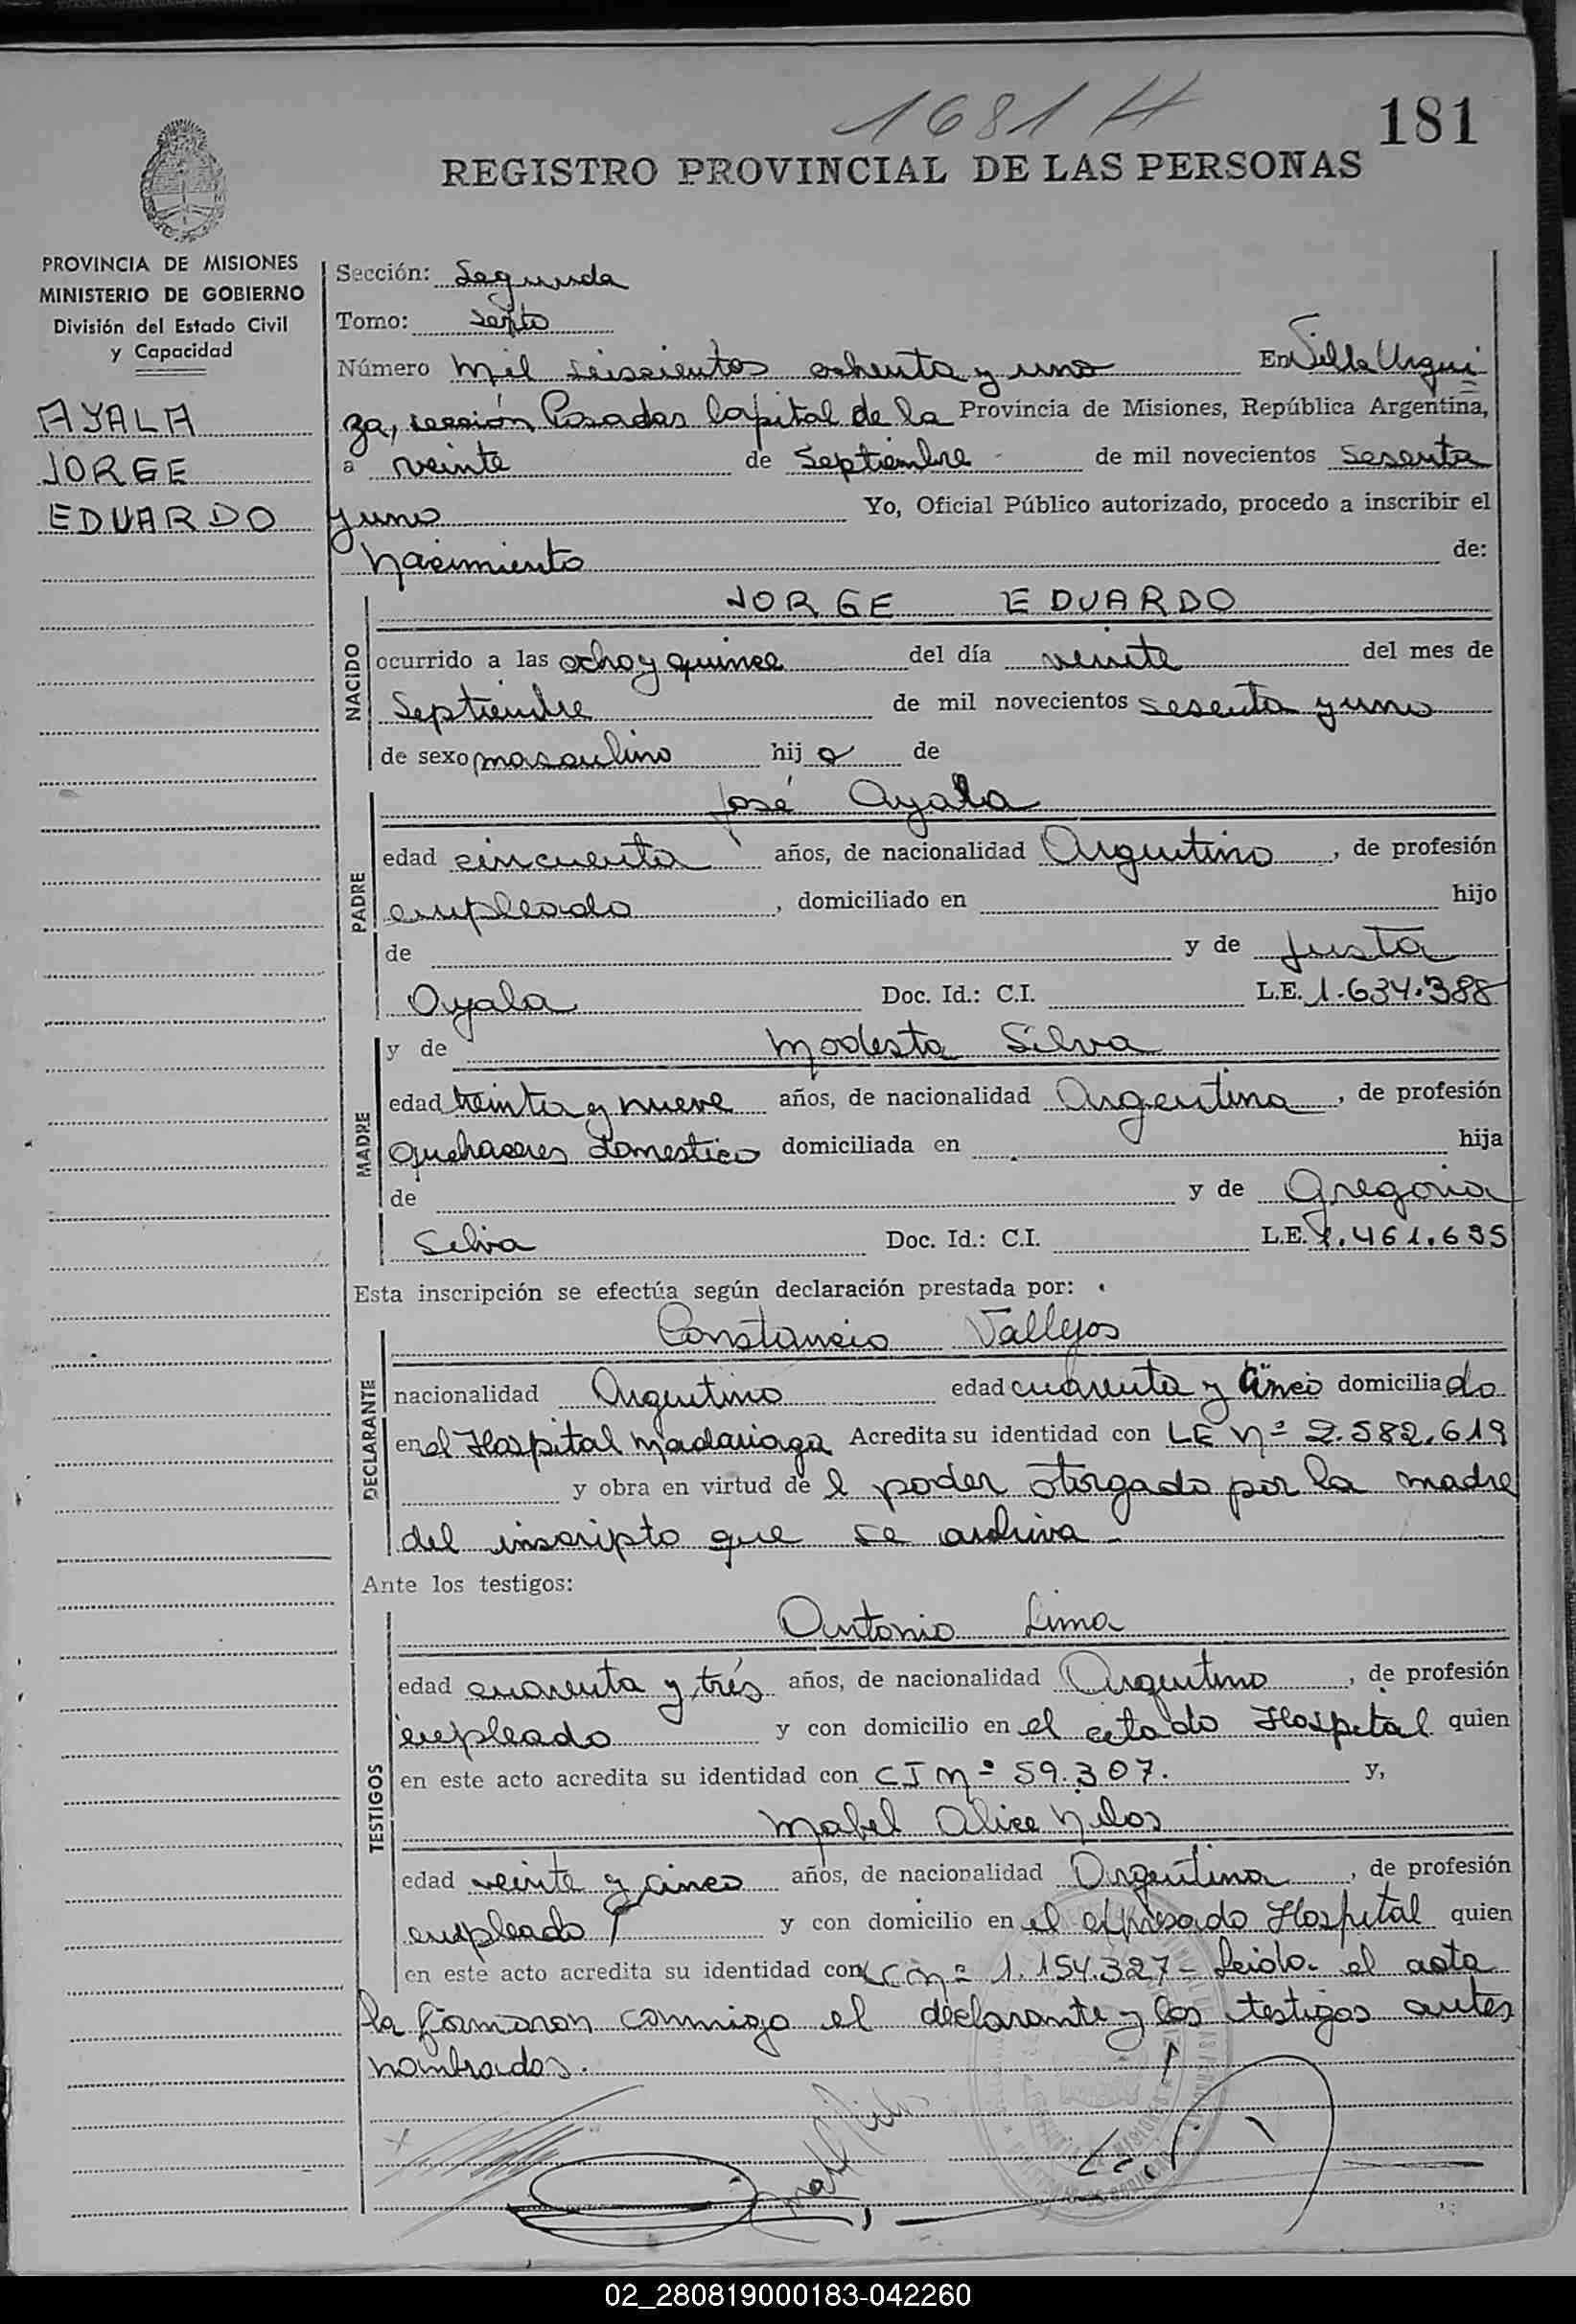 1681 H
181
REGISTRO PROVINCIAL DE LAS PERSONAS
PROVINCIA DE MISIONES
MINISTERIO DE GOBIERNO
División del Estado Civil
y Capacidad
AYALA
JORGE
EDUARDO
Sección: Segunda
Tomo: Septo
Número mil seiscientos ochenta y uno En Villa Urqui
za, sección Posadas Capital de la Provincia de Misiones, República Argentina,
a veinte de Septiembre de mil novecientos sesenta
y uno Yo, Oficial Público autorizado, procedo a inscribir el
Nacimiento de:
JORGE EDUARDO
NACIDO
ocurrido a las ocho y quince del día veinte del mes de
Septiembre de mil novecientos sesenta y uno
de sexo masculino hijo de
José Ayala
PADRE
edad cincuenta años, de nacionalidad Argentino, de profesión
empleado, domiciliado en hijo
de y de Justa
Ayala Doc. Id.: C.I. L.E. 1.634.388
y de Modesta Silva
MADRE
edad treinta y nueve años, de nacionalidad Argentina, de profesión
quehaceres domestico domiciliada en hija
de y de Gregoria
Silva Doc. Id.: C.I. L.E. 1.461.635
Esta inscripción se efectúa según declaración prestada por:
Constancio Vallejos
DECLARANTE
nacionalidad Argentino edad cuarenta y cinco domiciliado
en el Hospital Madariaga Acredita su identidad con LE Nº 2.582.619
y obra en virtud de l poder otorgado por la madre
del inscripto que se archiva
Ante los testigos:
Antonio Lima
TESTIGOS
edad cuarenta y trés años, de nacionalidad Argentino, de profesión
empleado y con domicilio en el citado Hospital quien
en este acto acredita su identidad con CI Nº 59.307. y,
Mabel Alice
edad veinte y cinco años, de nacionalidad Argentina, de profesión
empleado y con domicilio en el expresado Hospital quien
en este acto acredita su identidad con LC Nº 1.154.327- Leido el acta
la firmaron conmigo el declarante y los testigos antes
nombrados.
02_280819000183-042260